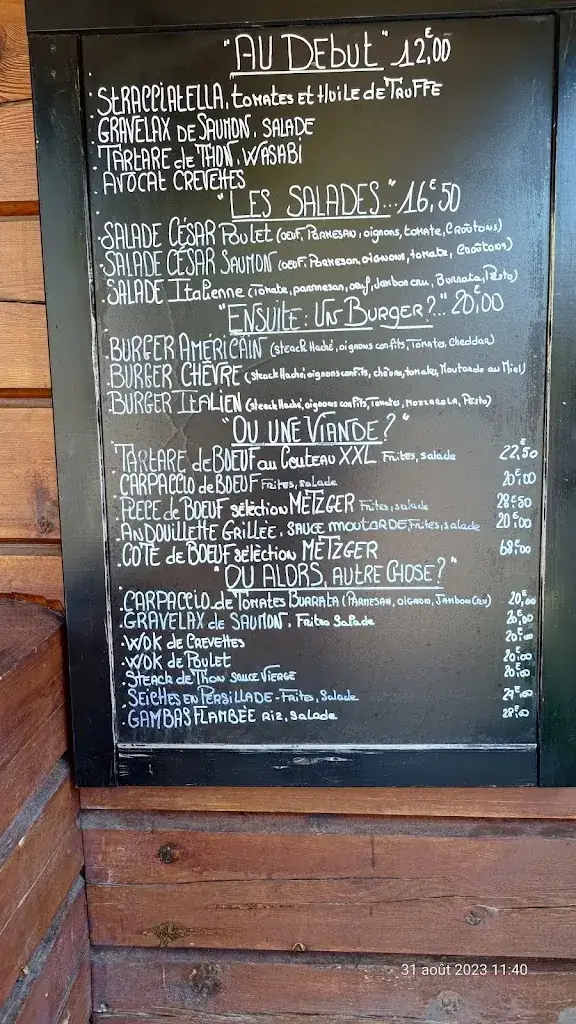 "AU DEBUT" 12,€00
. STRACCIATELLA, tomates et Huile de TRUFFE
. GRAVELAX de SAUMON, SALADE
. TARTARE de THON, WASABI
. AVOCAT CREVETTES
"LES SALADES..." 16,€50
. SALADE CÉSAR Poulet (oeuf, Parmesan, oignons, tomate, Croûtons)
. SALADE CÉSAR SAUMON (oeuf, Parmesan, oignons, tomate, Croûtons)
. SALADE Italienne (Tomate, parmesan, oeuf, Jambon cru, Burrata, Pesto)
"ENSUITE: UN BURGER?..." 20,€00
. BURGER AMERICAIN (steack Haché, oignons confits, Tomates, Cheddar)
. BURGER CHÈVRE (steack Haché, oignons confits, chèvre, tomates, Moutarde au Miel)
. BURGER ITALIEN (steack Haché, oignons confits, Tomates, MOZZARELLA, Pesto)
"OU UNE VIANDE?"
. TARTARE de BOEUF au Couteau XXL Frites, salade 22,€50
. CARPACCIO de BOEUF Frites, salade 20,€00
. PIECE de BOEUF sélection METZGER Frites, salade 28,€50
. ANDOUILLETTE GRILLÉE, SAUCE MOUTARDE, Frites, salade 20,€00
. COTE de BOEUF sélection METZGER 68,€00
"OU ALORS, AUTRE CHOSE?"
. CARPACCIO de Tomates BURRATA (PARMESAN, oignon, Jambon Cru) 20,€00
. GRAVELAX de SAUMON, Frites Salade 20,€00
. WOK de Crevettes 20,€00
. WOK de Poulet 20,€00
. Steack de Thon Sauce Vierge 20,€00
. SEICHES EN PERSILLADE - Frites, Salade 24,€00
. GAMBAS FLAMBÉE Riz, Salade 28,€00
31 août 2023 11:40